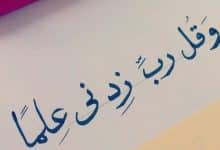 وَقُل ربِّ زِدنی عِلمًا